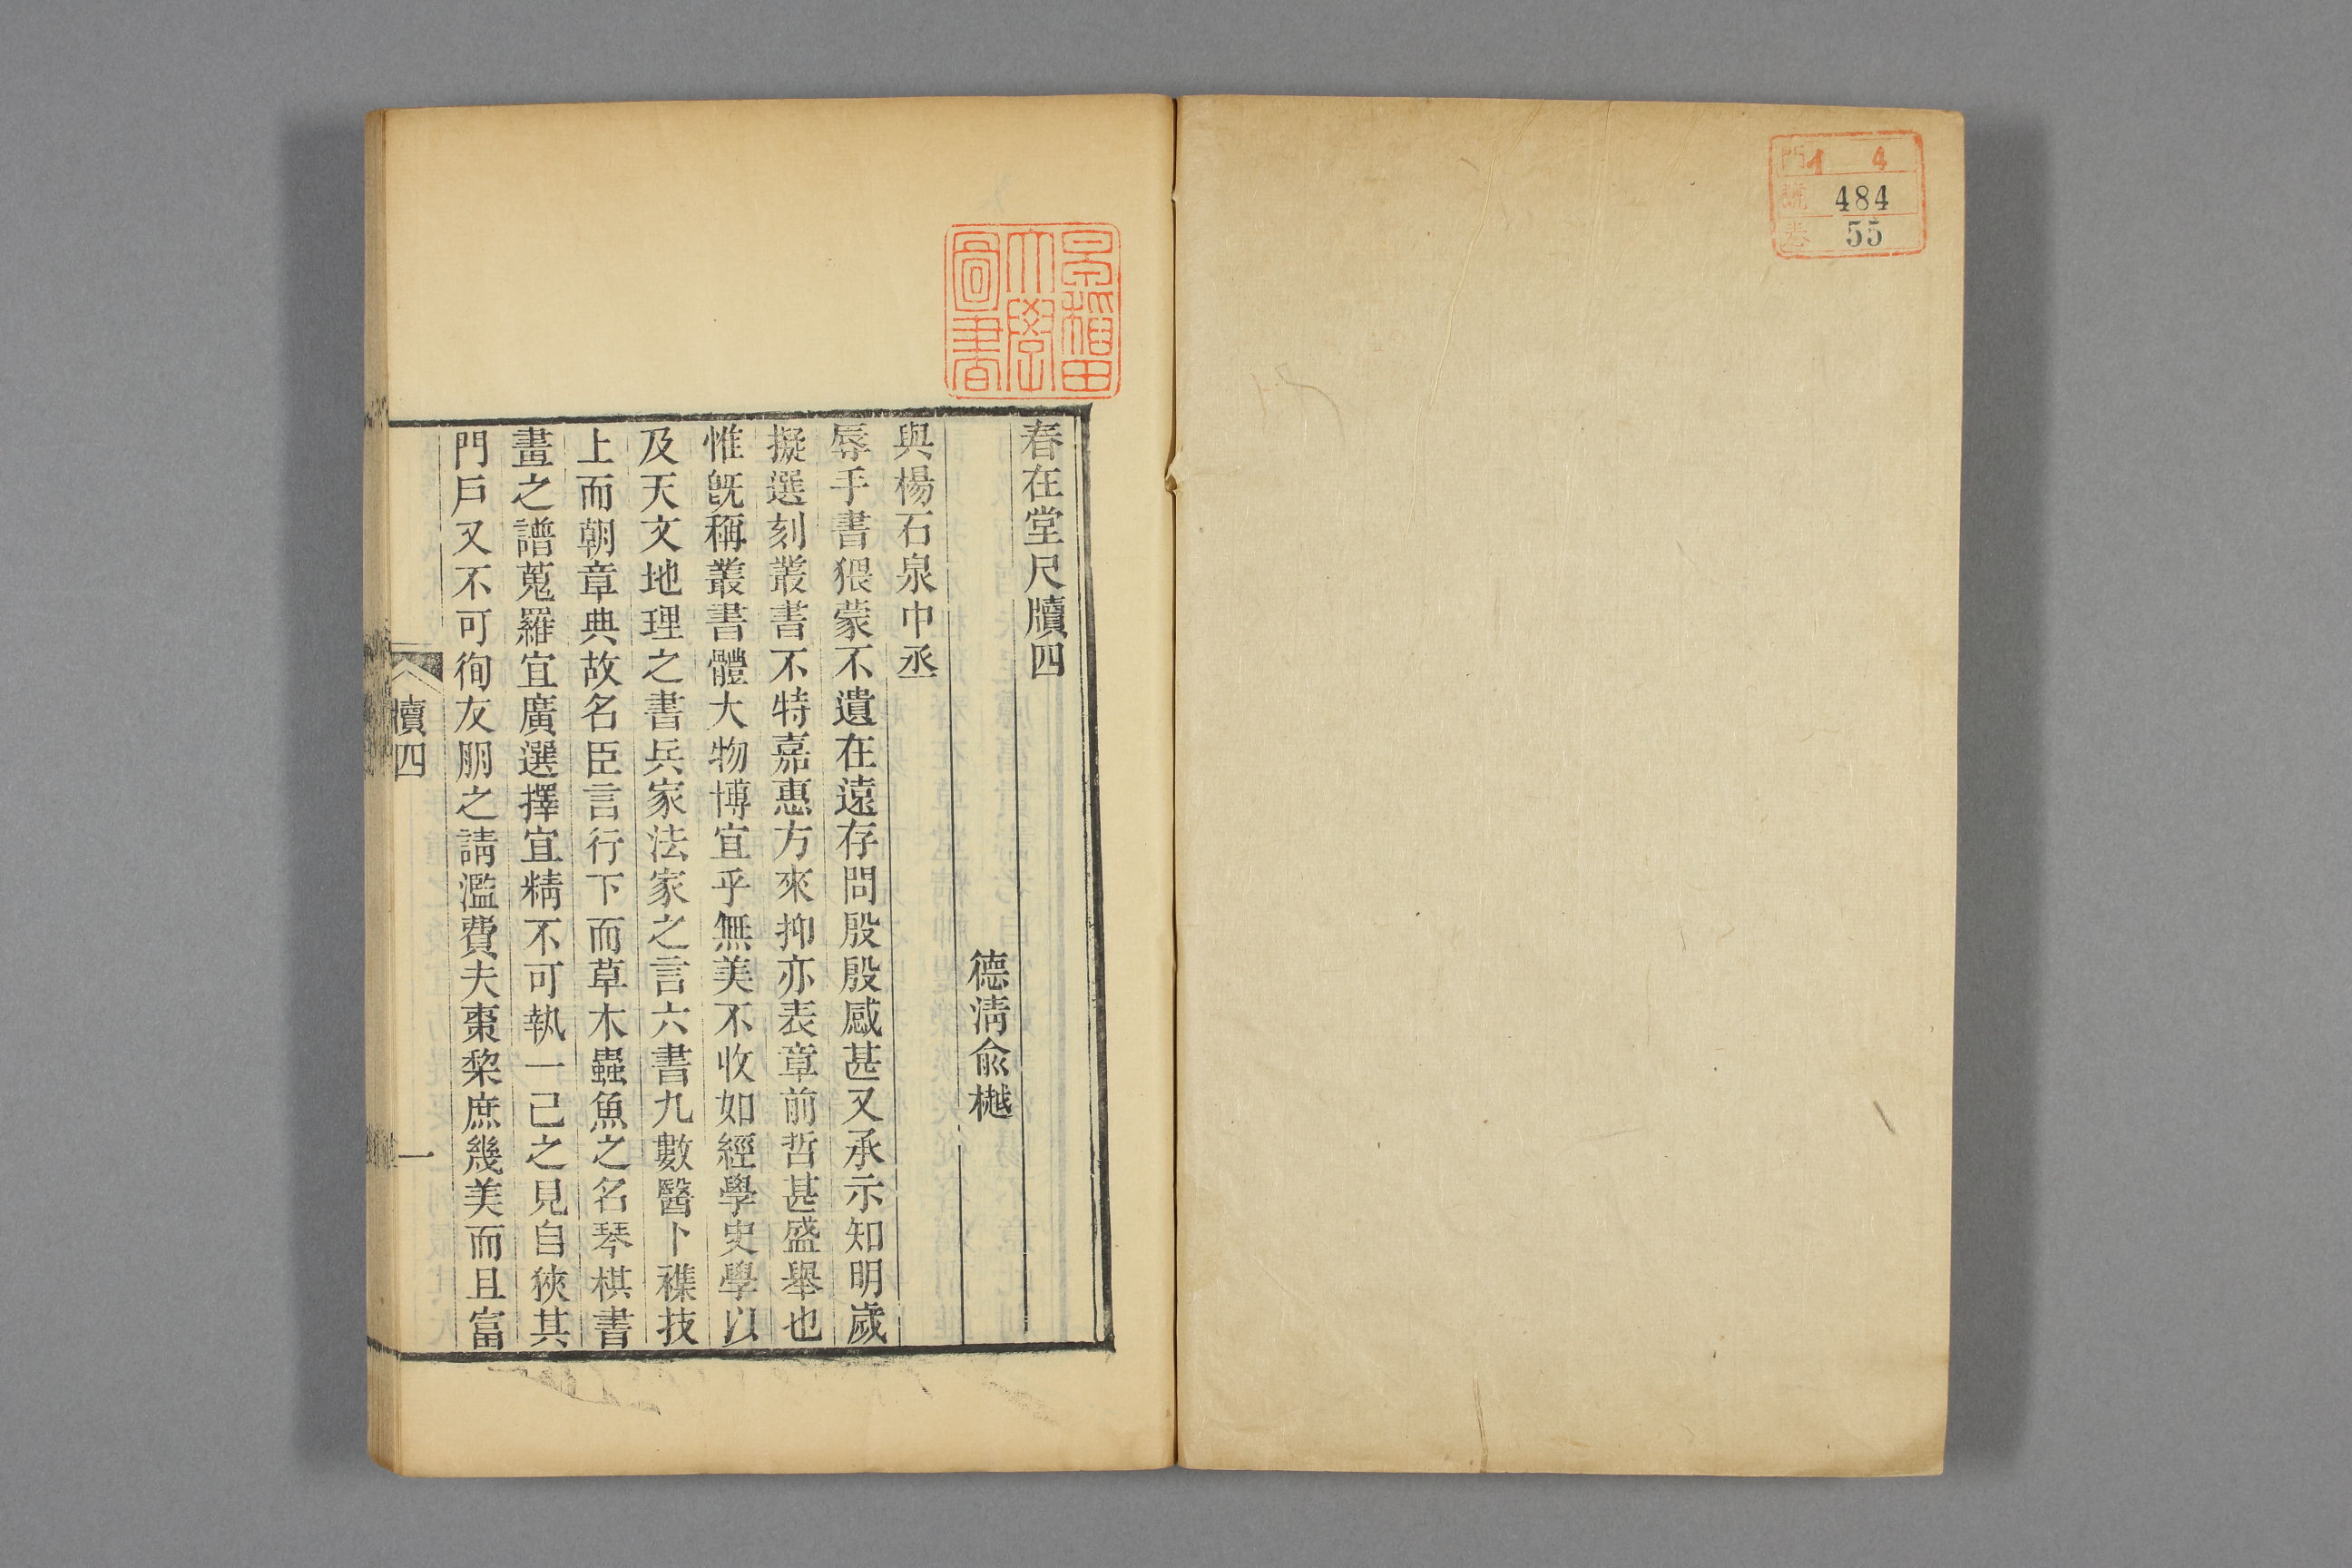 門 イ 4
號 484
卷 55
早稻田
大學
圖書
春在堂尺牘四
德清俞樾
與楊石泉中丞
辱手書猥蒙不遺在遠存問殷殷感甚又承示知明歲
擬選刻叢書不特嘉惠方來抑亦表章前哲甚盛舉也
惟旣稱叢書體大物博宜乎無美不收如經學史學以
及天文地理之書兵家法家之言六書九數醫卜襍技
上而朝章典故名臣言行下而草木蟲魚之名琴棋書
畫之譜蒐羅宜廣選擇宜精不可執一己之見自狹其
門戶又不可徇友朋之請濫費夫棗棃庶幾美而且富
牘四
一